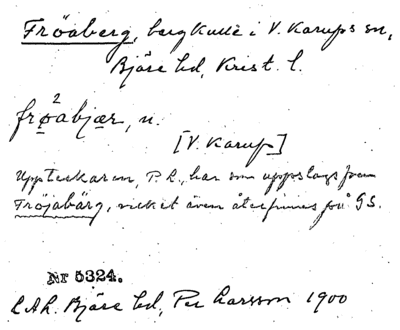 Fröaberg, bergkulle i V. Karups sn,
Bjäre hd, Krist. l.
frø²abjær, n.
[V. Karup]
Upptecknaren, P. L., har som uppslagsform
Fröjabärg, vilket även återfinnes på GS.
Nr 5324.
LAL. Bjäre hd, Per Larsson 1900